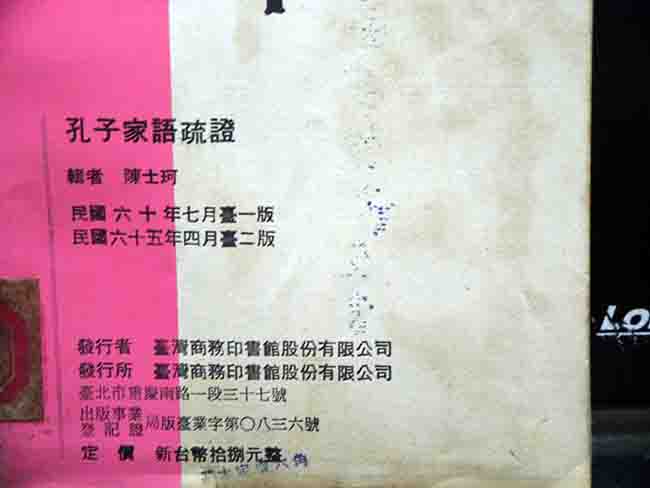 孔子家語疏證
輯者 陳士珂
民國六十年七月臺一版
民國六十五年四月臺二版
發行者 臺灣商務印書館股份有限公司
發行所 臺灣商務印書館股份有限公司
臺北市重慶南路一段三十七號
出版事業登記證 局版臺業字第〇八三六號
定價 新台幣拾捌元整